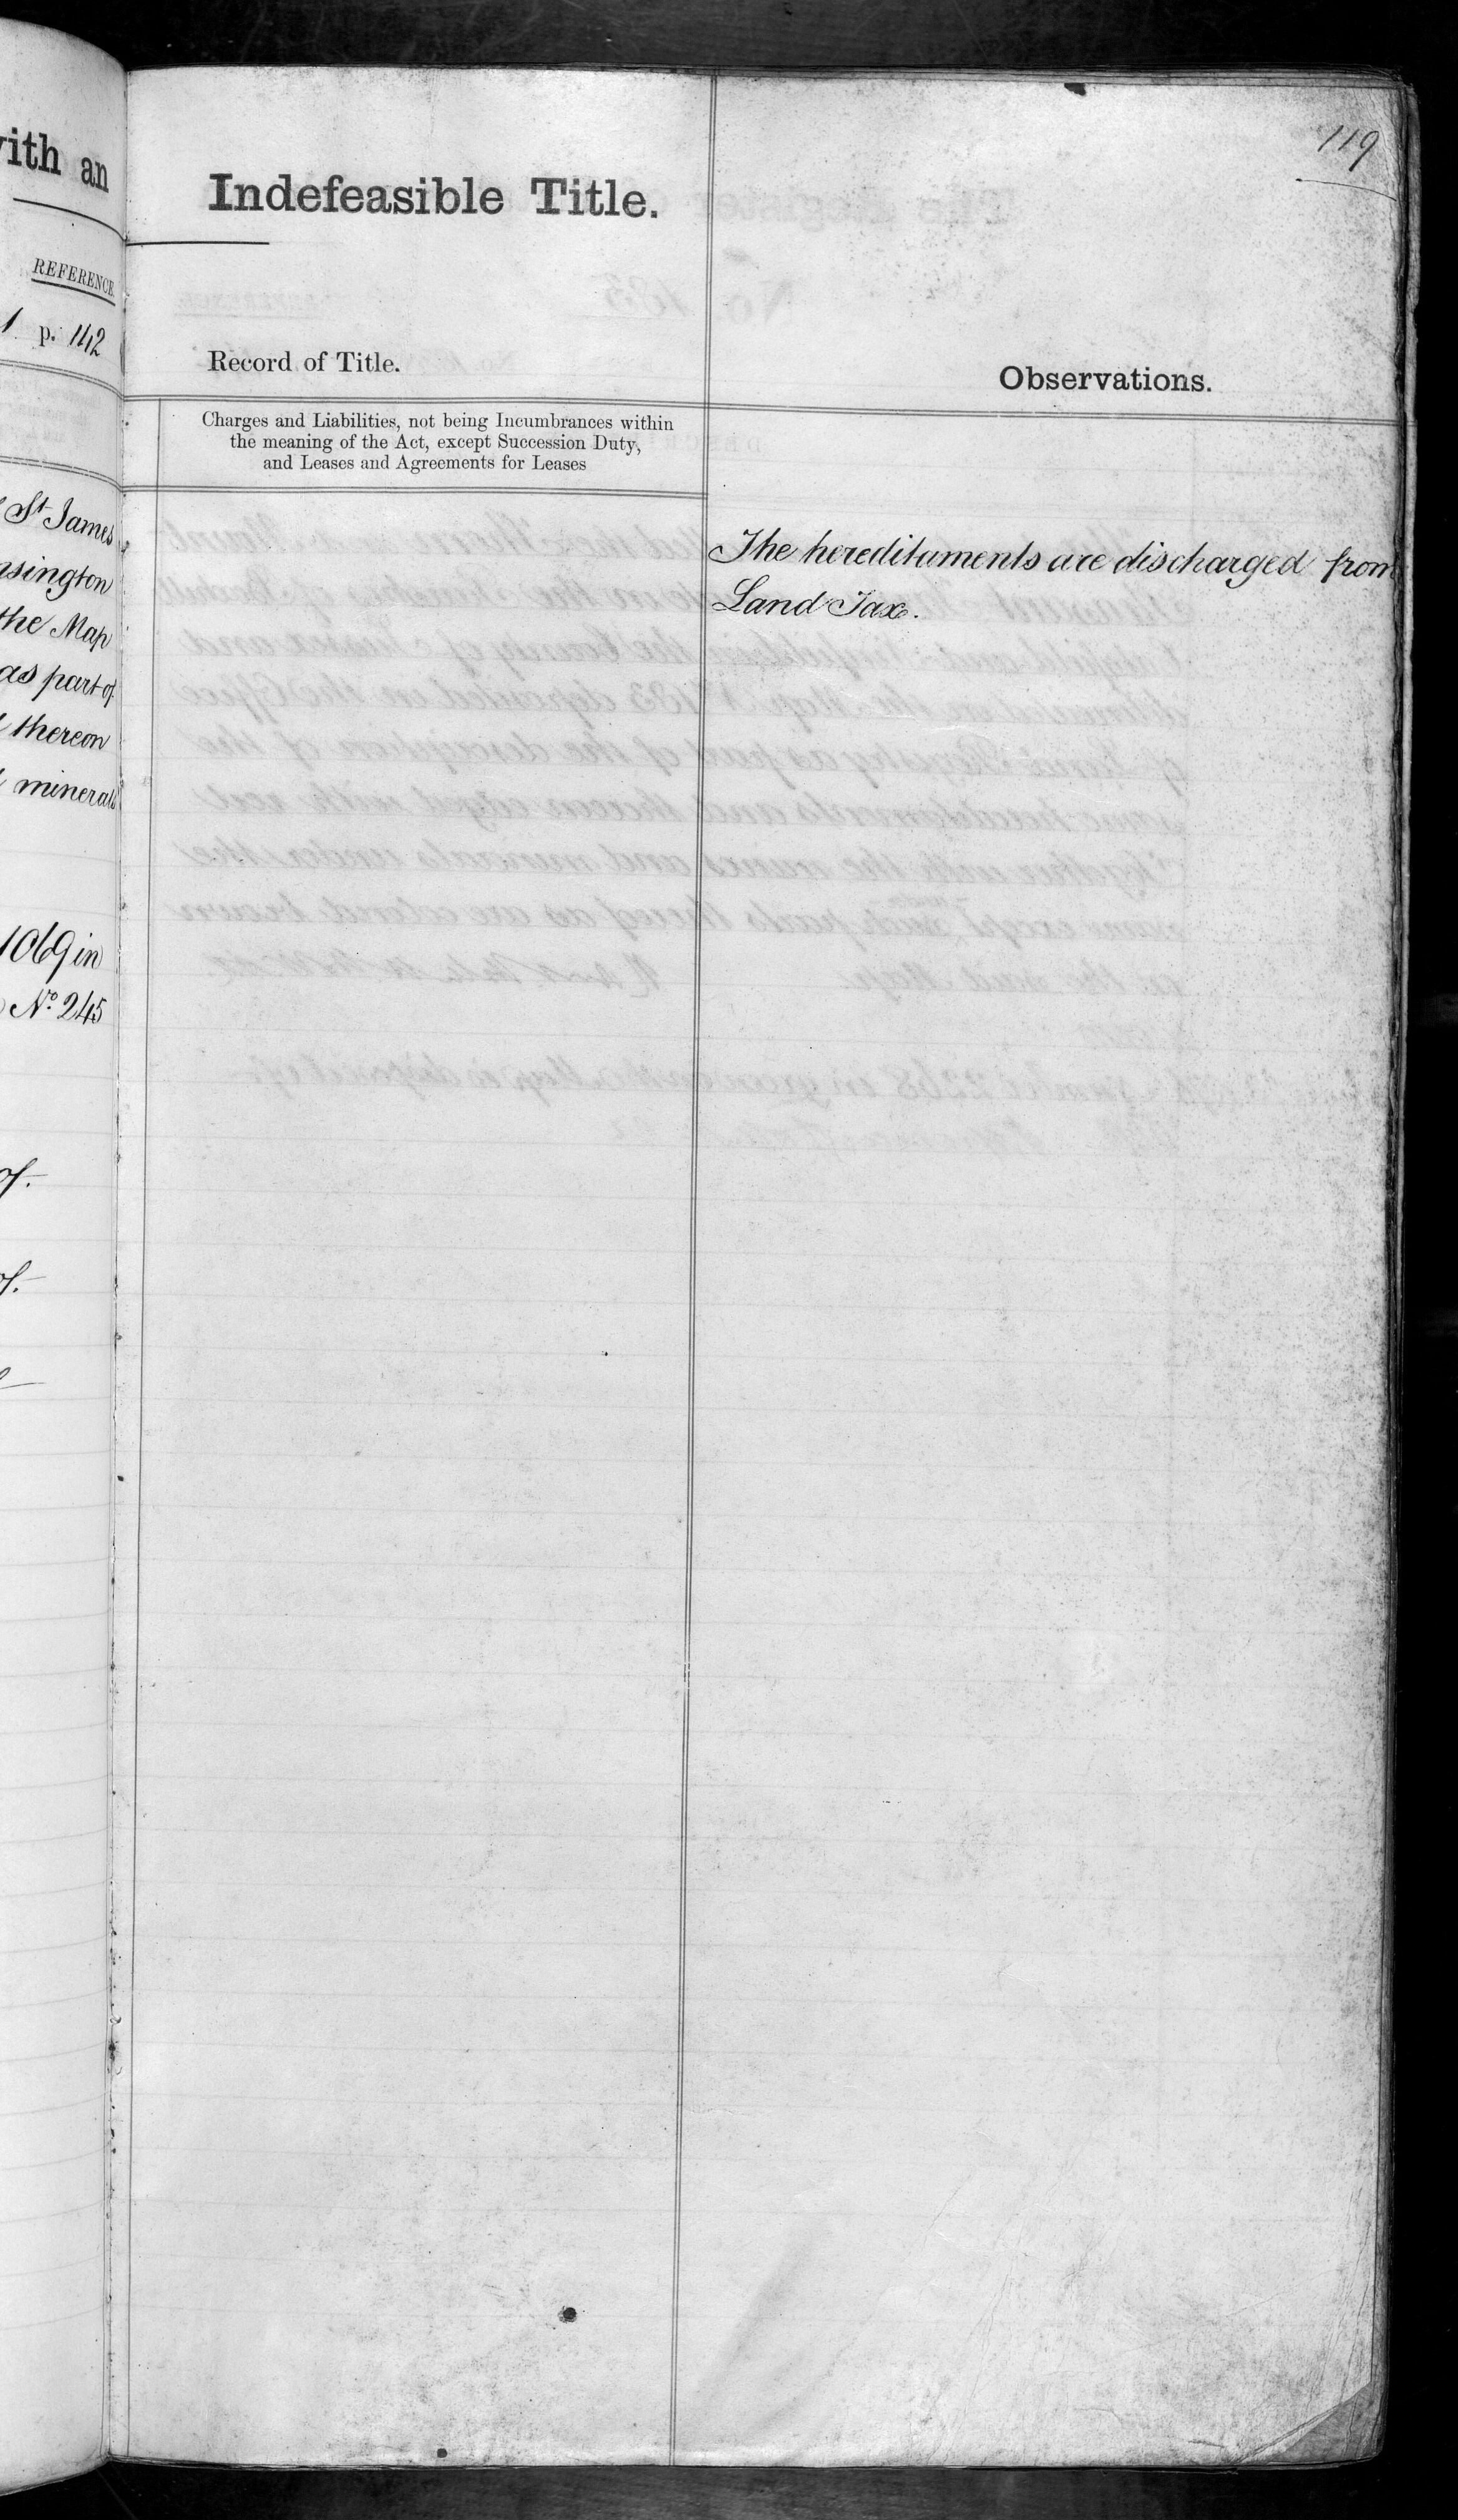 with an
REFERENCE.
1 p. 142
St James
the Map
as part of
thereon
minerals
1069 in
No 245
of.
of.
119
Indefeasible Title.
Record of Title.
Observations.
Charges and Liabilities, not being Incumbrances within
the meaning of the Act, except Succession Duty,
and Leases and Agreements for Leases
The hereditaments are discharged from
Land Tax.